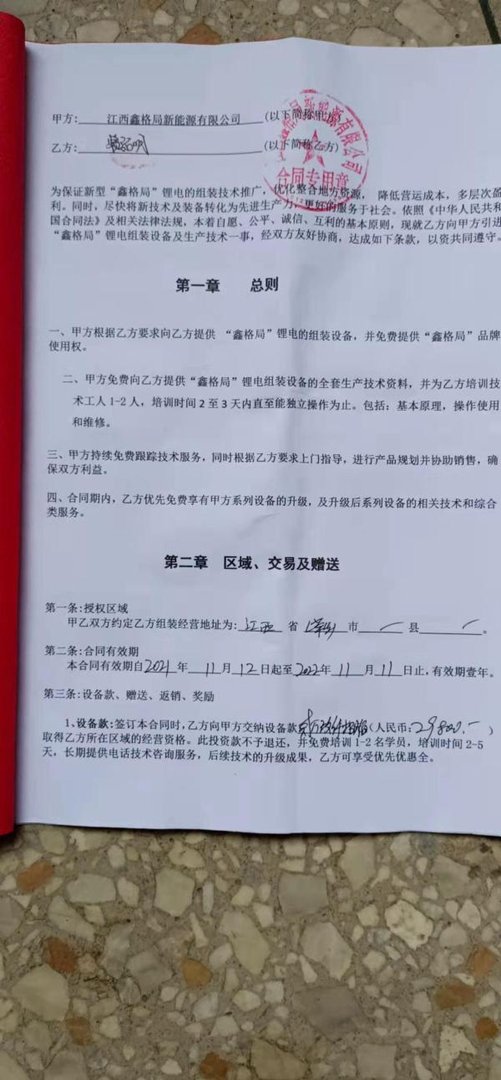 甲方: 江西鑫格局新能源有限公司 (以下简称甲方)
乙方: (以下简称乙方)
合同专用章
为保证新型“鑫格局”锂电的组装技术推广，优化整合地方资源， 降低营运成本，多层次盈
利。同时，尽快将新技术及装备转化为先进生产力，更好的服务于社会。依照《中华人民共和
国合同法》及相关法律法规，本着自愿、公平、诚信、互利的基本原则，现就乙方向甲方引进
“鑫格局”锂电组装设备及生产技术一事，经双方友好协商，达成如下条款，以资共同遵守。
第一章 总则
一、甲方根据乙方要求向乙方提供 “鑫格局”锂电的组装设备，并免费提供“鑫格局”品牌
使用权。
二、甲方免费向乙方提供“鑫格局”锂电组装设备的全套生产技术资料，并为乙方培训技
术工人 1-2 人，培训时间 2 至 3 天内直至能独立操作为止。包括：基本原理，操作使用
和维修。
三、甲方持续免费跟踪技术服务，同时根据乙方要求上门指导，进行产品规划并协助销售，确
保双方利益。
四、合同期内，乙方优先免费享有甲方系列设备的升级，及升级后系列设备的相关技术和综合
类服务。
第二章 区域、交易及赠送
第一条:授权区域
甲乙双方约定乙方组装经营地址为: 江西 省 萍乡 市 县 。
第二条:合同有效期
本合同有效期自2021年 11月12日起至2022年11月11日止,有效期壹年。
第三条:设备款、赠送、返销、奖励
1、设备款:签订本合同时,乙方向甲方交纳设备款 (人民币:29800.-)
取得乙方所在区域的经营资格。此投资款不予退还，并免费培训 1-2 名学员，培训时间 2-5
天，长期提供电话技术咨询服务，后续技术的升级成果，乙方可享受优先优惠全。